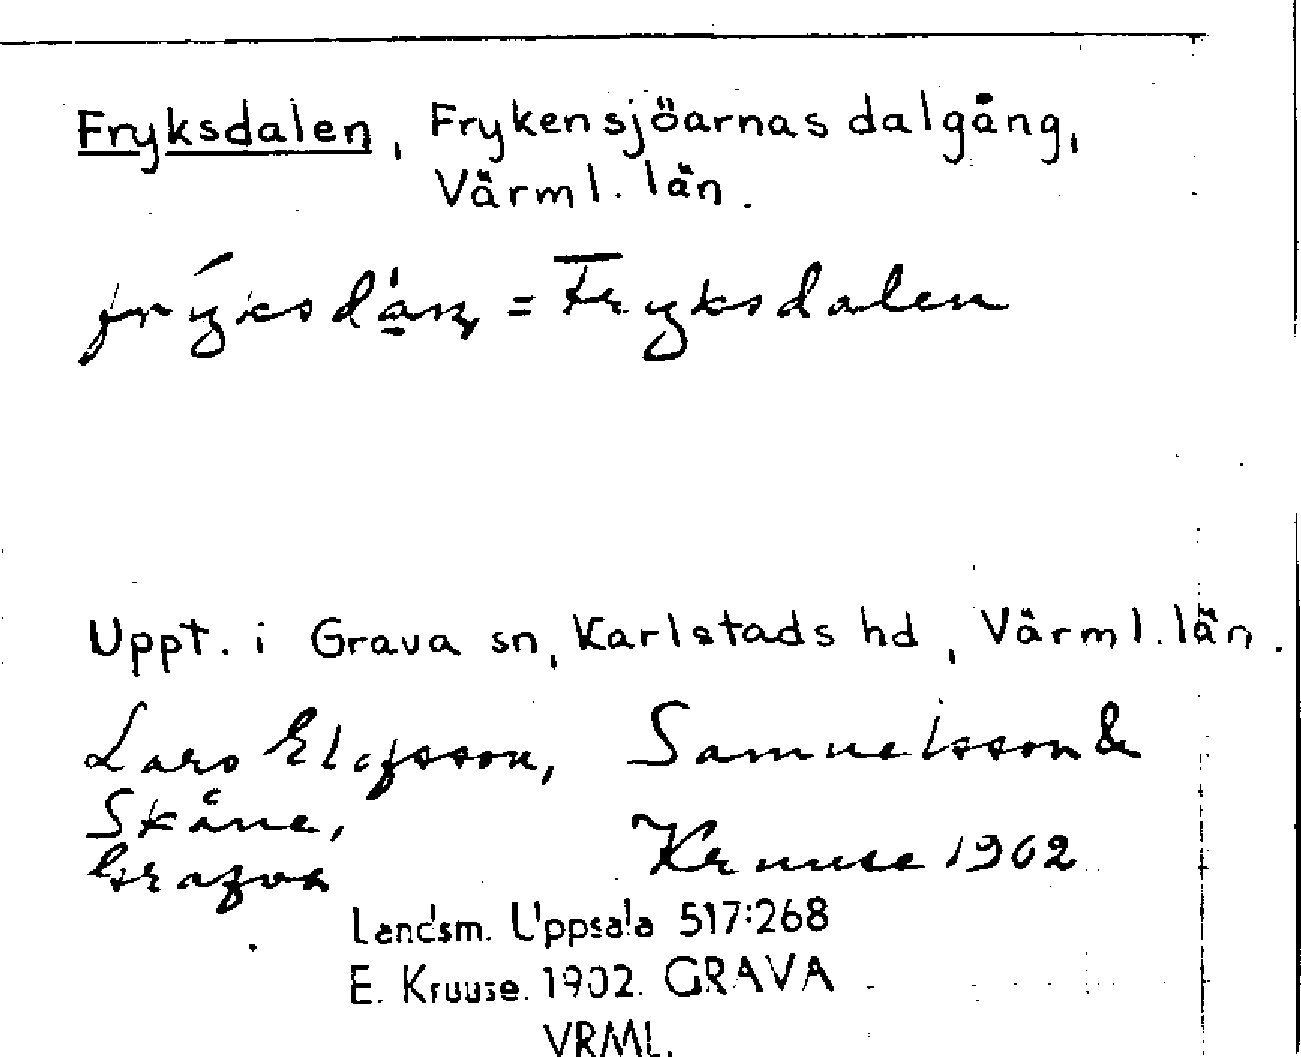 Fryksdalen, Frykensjöarnas dalgång,
Värml. län.
= Fryksdalen
Uppt. i Grava sn, Karlstads hd, Värml. län.
Lars Elofsson, Samuelsson &
Skåne,
Grafva Kruuse 1902
Landsm. Uppsala 517:268
E. Kruuse. 1902. GRAVA
VRML.